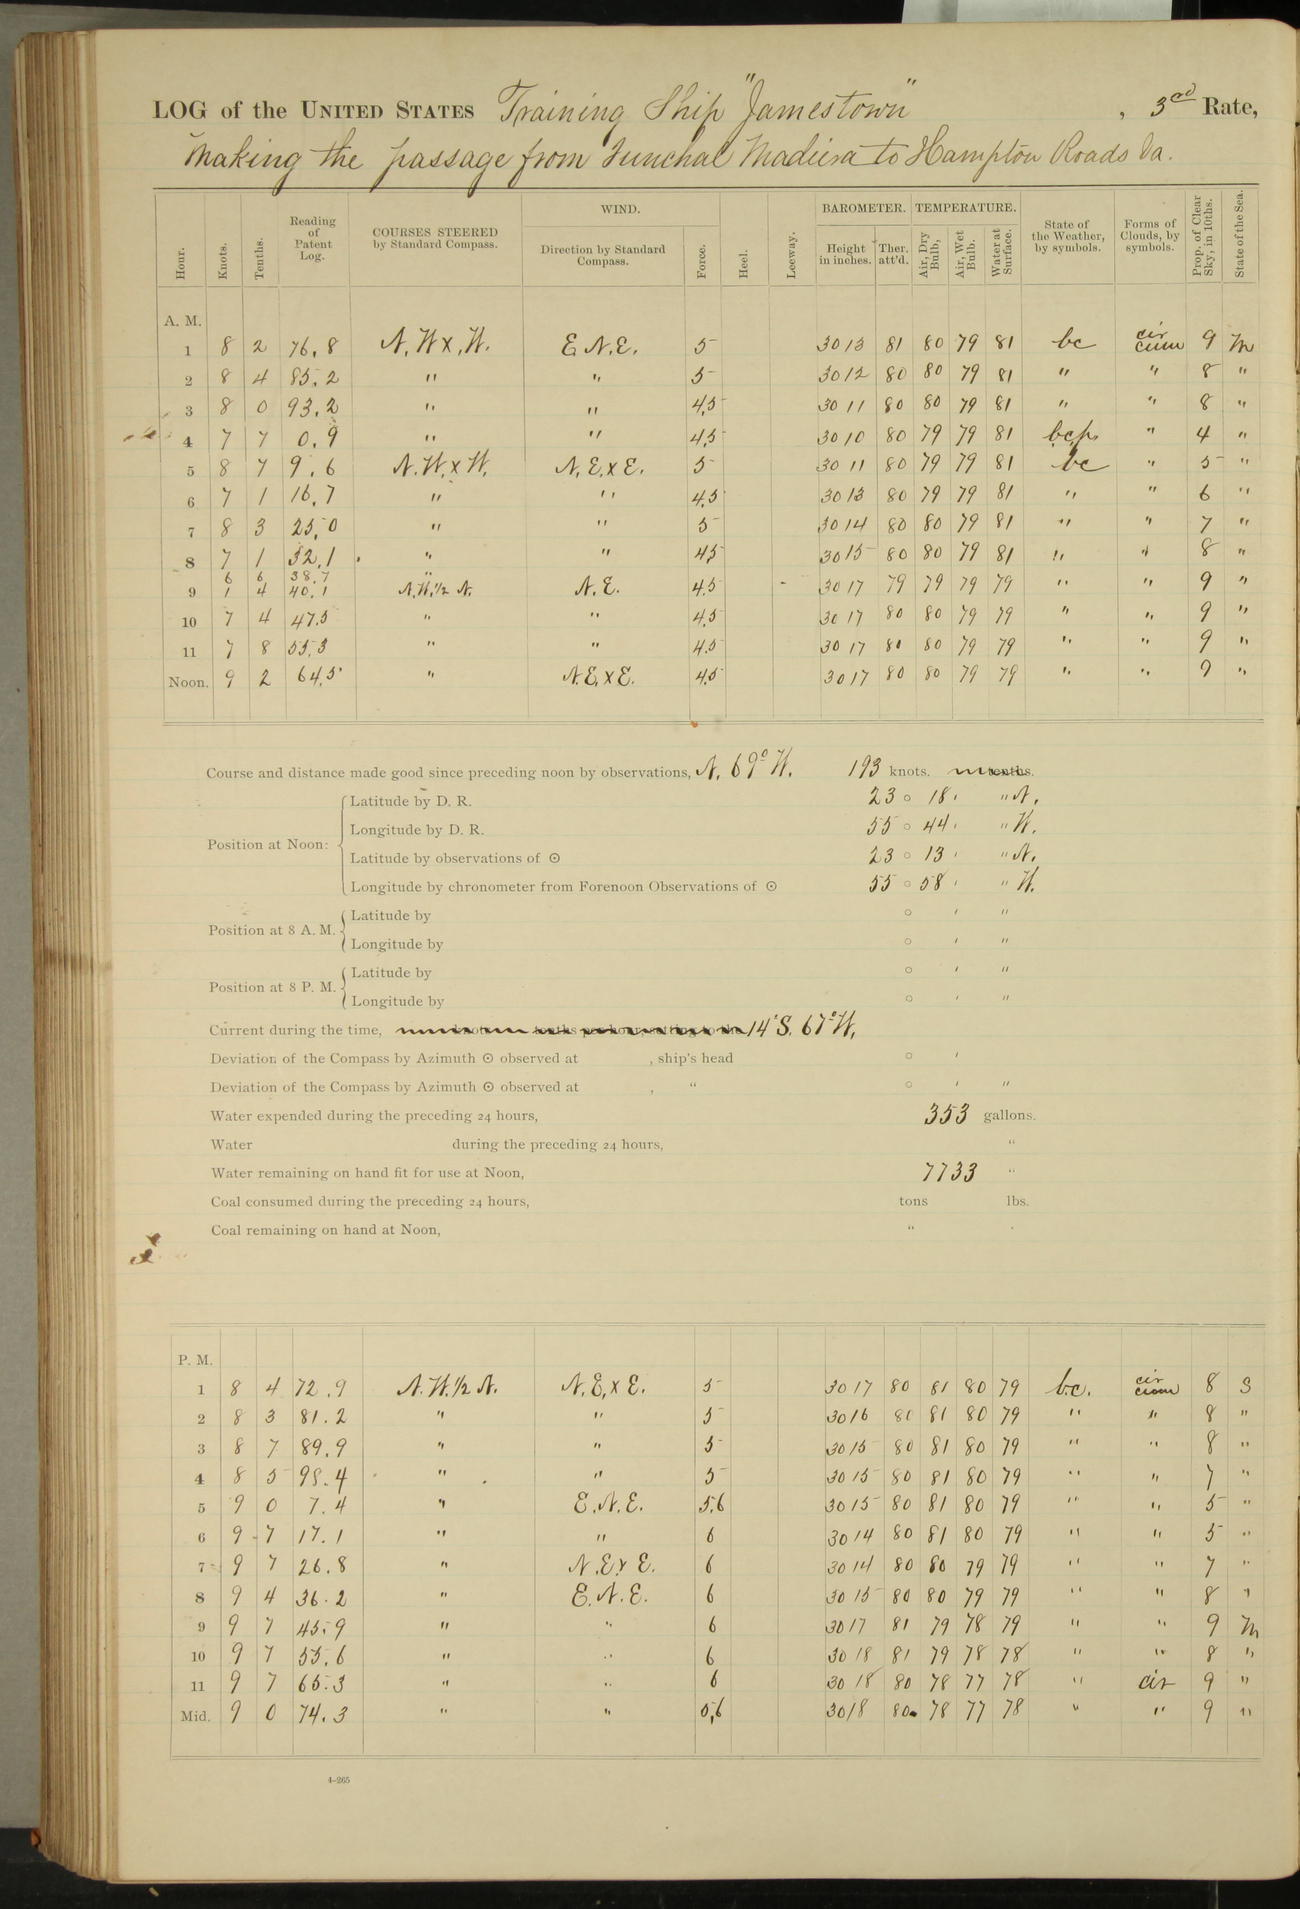 LOG of the UNITED STATES Training Ship "Jamestown", 3rd Rate,
Making the passage from Funchal Madiera to Hampton Roads Va.
Hour. Knots. Tenths. Reading of Patent Log. COURSES STEERED by Standard Compass. WIND. Direction by Standard Compass. Force. Heel. Leeway. BAROMETER. Height in inches. Ther. att'd. TEMPERATURE. Air, Dry Bulb, Air, Wet Bulb. Water at Surface. State of the Weather, by symbols. Forms of Clouds, by symbols. Prop. of Clear Sky, in 10ths. State of the Sea.
A. M.
1 8 2 76.8 N.W x.W. E.N.E. 5 30 13 81 80 79 81 bc cir cum 9 M
2 8 4 85.2 " " 5 30 12 80 80 79 81 " " 8 "
3 8 0 93.2 " " 4.5 30 11 80 80 79 81 " " 8 "
4 7 7 0.9 " " 4.5 30 10 80 79 79 81 bcp. " 4 "
5 8 7 9.6 N.W.x W. N.E.x E. 5 30 11 80 79 79 81 bc " 5 "
6 7 1 16.7 " " 4.5 30 13 80 79 79 81 " " 6 "
7 8 3 25.0 " " 5 30 14 80 80 79 81 " " 7 "
8 7 1 32.1 " " 4.5 30 15 80 80 79 81 " " 8 "
6 6 38.7 "
9 1 4 40.1 N.W.1/2 N. N.E. 4.5 30 17 79 79 79 79 " " 9 "
10 7 4 47.5 " " 4.5 30 17 80 80 79 79 " " 9 "
11 7 8 55.3 " " 4.5 30 17 80 80 79 79 " " 9 "
Noon. 9 2 64.5 " N.E.x E. 4.5 30 17 80 80 79 79 " " 9 "
Course and distance made good since preceding noon by observations, N. 69° W. 193 knots. tenths.
Position at Noon:
Latitude by D. R. 23 ° 18 ' " N.
Longitude by D. R. 55 ° 44 ' " W.
Latitude by observations of ☉ 23 ° 13 ' " N.
Longitude by chronometer from Forenoon Observations of ☉ 55 ° 58 ' " W.
Position at 8 A. M.
Latitude by ° ' "
Longitude by ° ' "
Position at 8 P. M.
Latitude by ° ' "
Longitude by ° ' "
Current during the time, knots tenths per hour, setting to the 14' S. 67° W.
Deviation of the Compass by Azimuth ☉ observed at , ship's head ° '
Deviation of the Compass by Azimuth ☉ observed at , " ° ' "
Water expended during the preceding 24 hours, 353 gallons.
Water during the preceding 24 hours, "
Water remaining on hand fit for use at Noon, 7733 "
Coal consumed during the preceding 24 hours, tons lbs.
Coal remaining on hand at Noon, "
P. M.
1 8 4 72.9 N.W.1/2 N. N.E.x E. 5 30 17 80 81 80 79 b.c. cir cum 8 S
2 8 3 81.2 " " 5 30 16 80 81 80 79 " " 8 "
3 8 7 89.9 " " 5 30 15 80 81 80 79 " " 8 "
4 8 5 98.4 " " 5 30 15 80 81 80 79 " " 7 "
5 9 0 7.4 " E.N.E. 5.6 30 15 80 81 80 79 " " 5 "
6 9 7 17.1 " " 6 30 14 80 81 80 79 " " 5 "
7 9 7 26.8 " N.E x E. 6 30 14 80 80 79 79 " " 7 "
8 9 4 36.2 " E.N.E. 6 30 15 80 80 79 79 " " 8 "
9 9 7 45.9 " " 6 30 17 81 79 78 79 " " 9 M
10 9 7 55.6 " " 6 30 18 81 79 78 78 " " 8 "
11 9 7 65.3 " " 6 30 18 80 78 77 78 " cir 9 "
Mid. 9 0 74.3 " " 5.6 30 18 80 78 77 78 " " 9 "
4-265